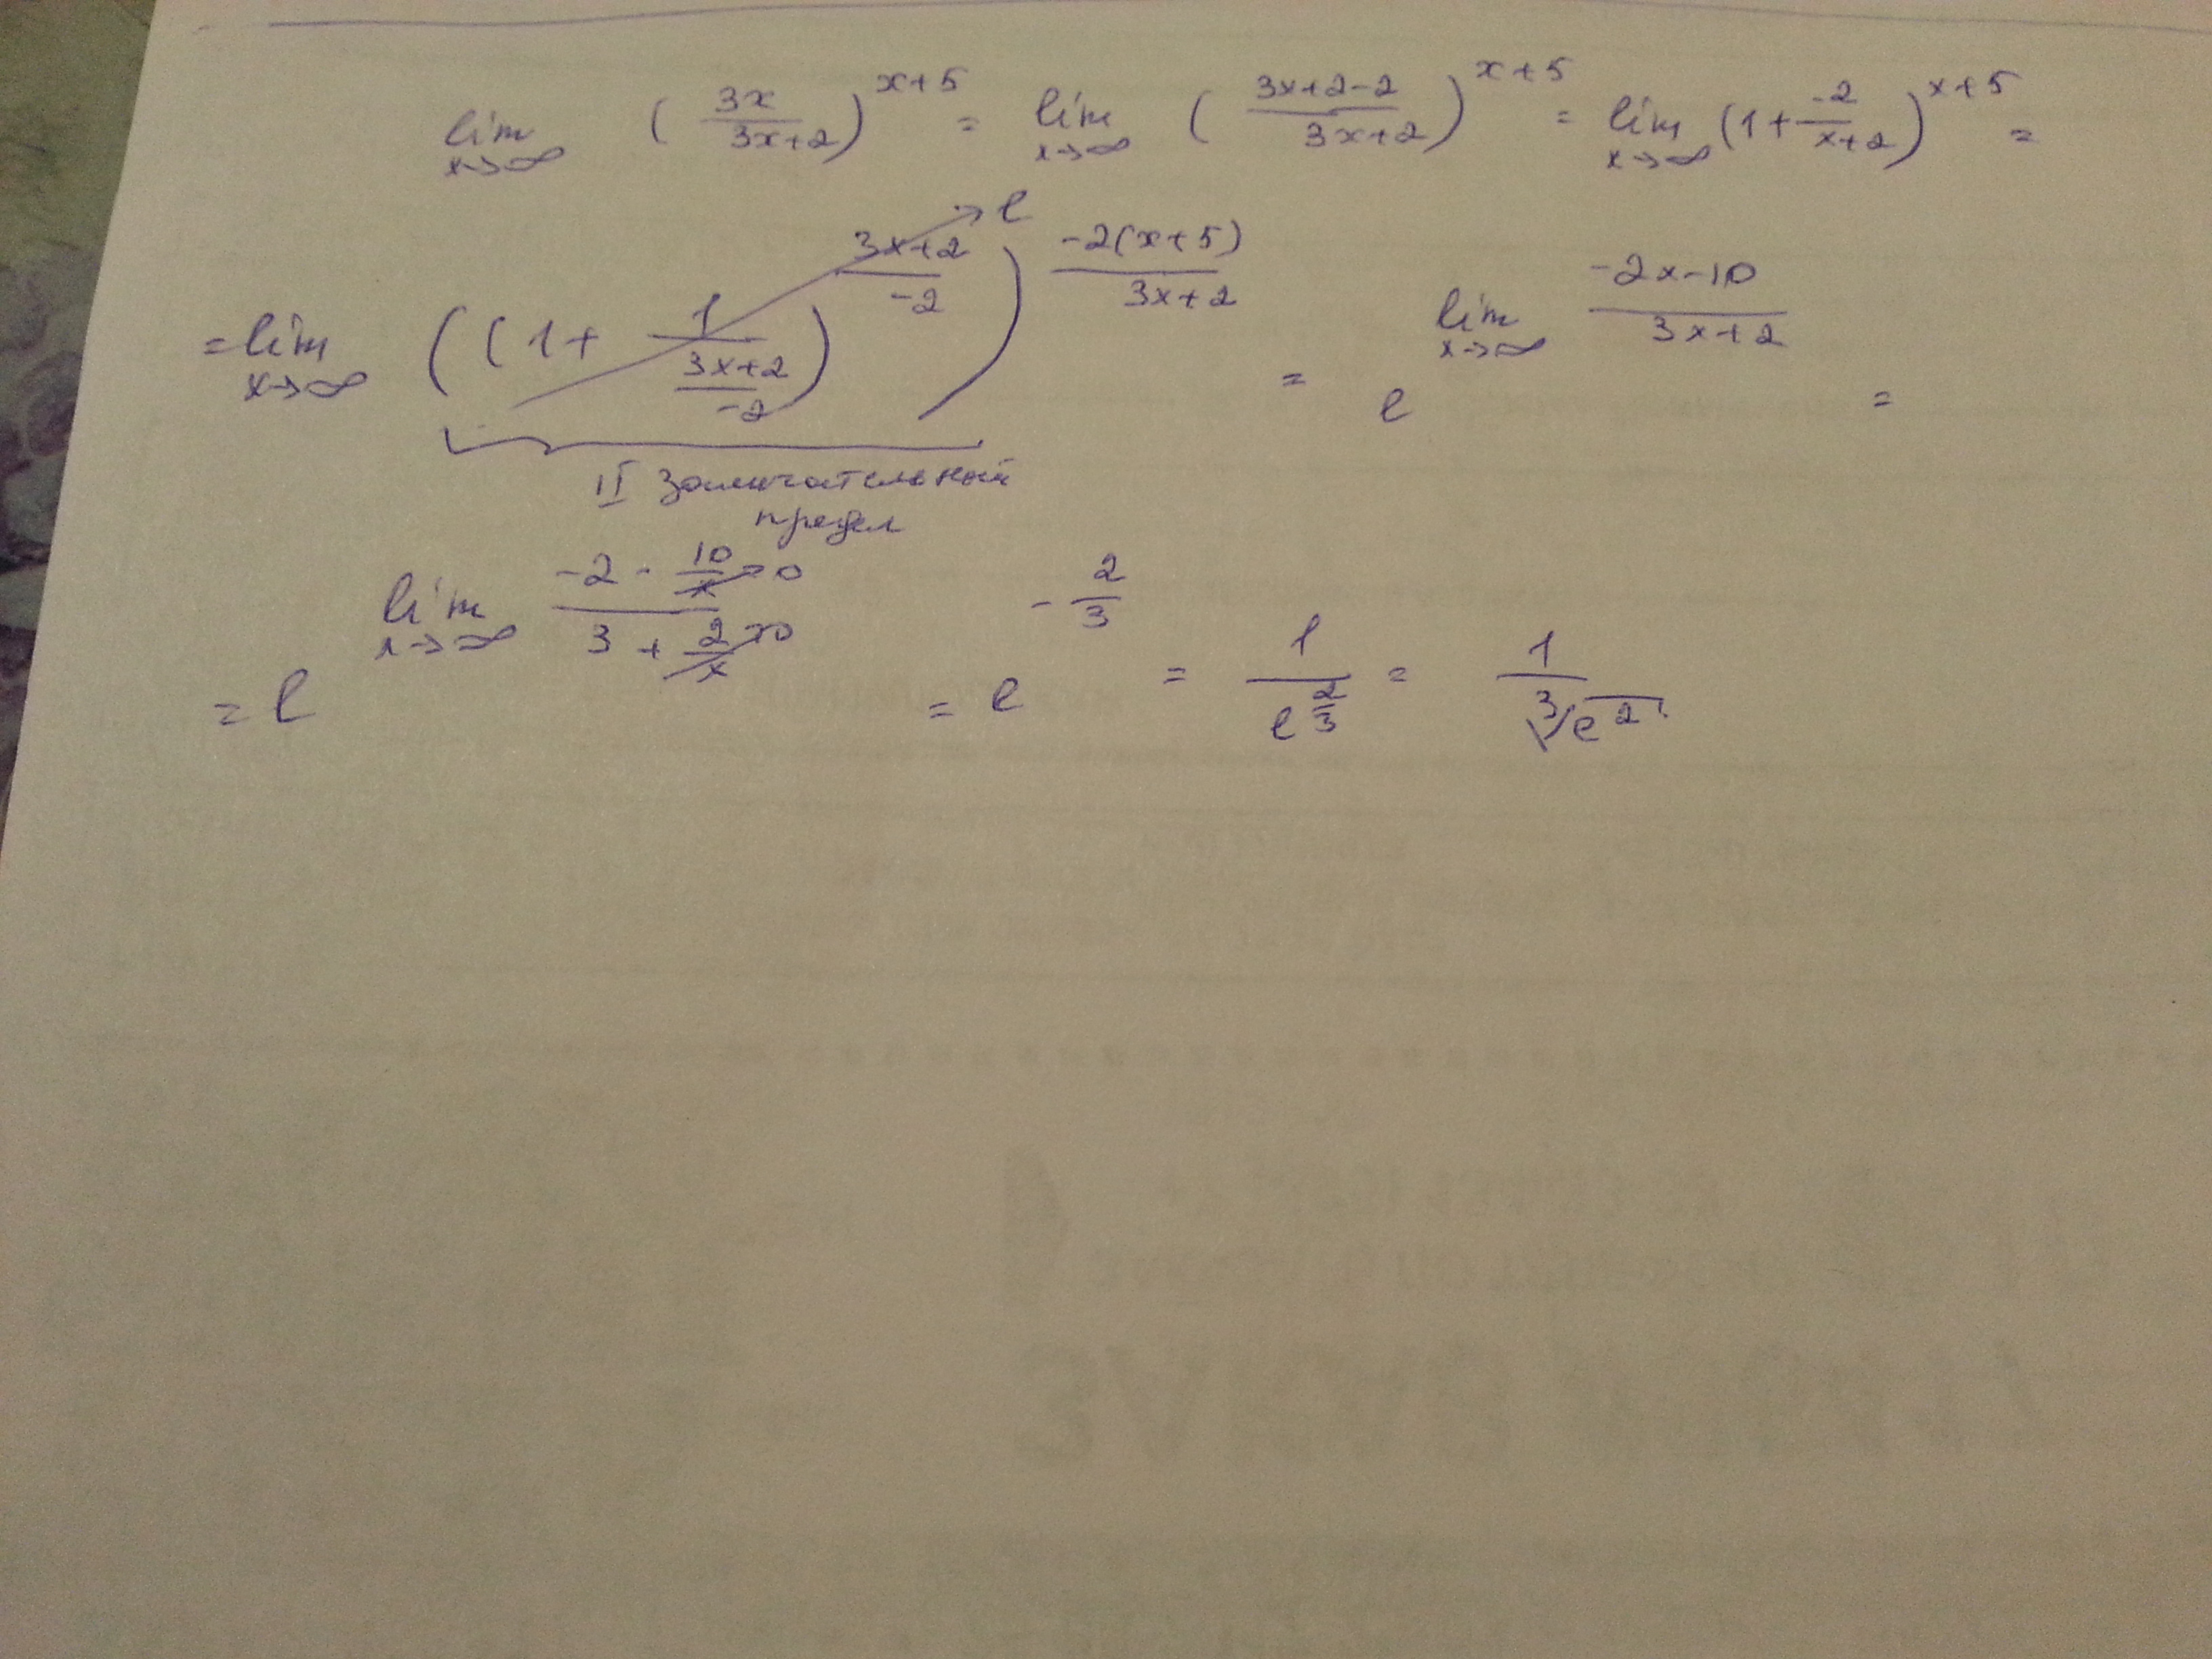 lim x→∞ (3x/(3x+2))^(x+5) = lim x→∞ ((3x+2-2)/(3x+2))^(x+5) = lim x→∞ (1+(-2)/(x+2))^(x+5) =
= lim x→∞ ((1+1/((3x+2)/(-2)))^((3x+2)/(-2)))^((-2(x+5))/(3x+2)) → e = e^(lim x→∞ (-2x-10)/(3x+2)) =
II замечательный
предел
= e^(lim x→∞ (-2-10/x→0)/(3+2/x→0)) = e^(-2/3) = 1/e^(2/3) = 1/∛e^2